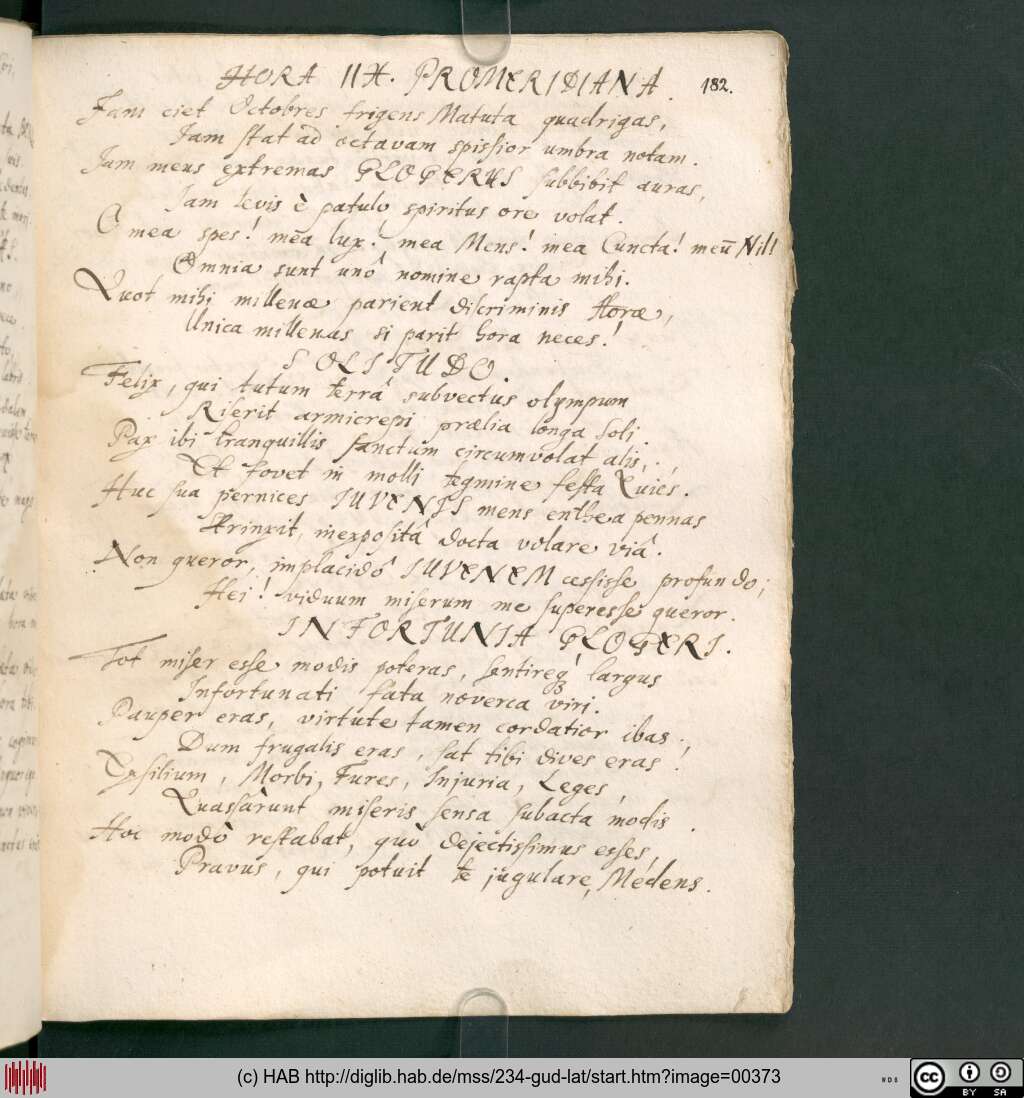 HORA IIX. PROMERIDIANA. 182.
Jam ciet Octobres frigens Matuta quadrigas,
Jam stat ad octavam spissior umbra notam.
Jam meus extremas GLOGERUS subbibit auras,
Jam levis è patulo spiritus ore volat.
O mea spes! mea lux! mea Mens! mea Cuncta! meū Nil!
Omnia sunt unô nomine rapta mihi.
Quot mihi millenæ parient discriminis Horæ,
Unica millenas si parit hora neces!
SOLITUDO.
Felix, qui tutum terrâ subvectus olympum
Riserit armicrepi prælia longa soli.
Pax ibi tranquillis sanctum circumvolat alis,
Et fovet in molli tegmine festa Quies.
Huc sua pernices IUVENIS mens enthea pennas
Strinxit, inexpositâ docta volare viâ.
Non queror, implacidô IUVENEM cessisse profundo;
Hei! viduum miserum me superesse queror.
INFORTUNIA GLOGERI.
Tot miser esse modis poteras, sentireq́ largus
Infortunati fata noverca viri.
Pauper eras, virtute tamen cordatior ibas;
Dum frugalis eras, sat tibi dives eras!
Exsilium, Morbi, Fures, Injuria, Leges,
Quassârunt miseris sensa subacta modis.
Hoc modò restabat, quò dejectissimus esses,
Pravus, qui potuit te jugulare, Medens.
(c) HAB http://diglib.hab.de/mss/234-gud-lat/start.htm?image=00373
WDB
cc
BY SA